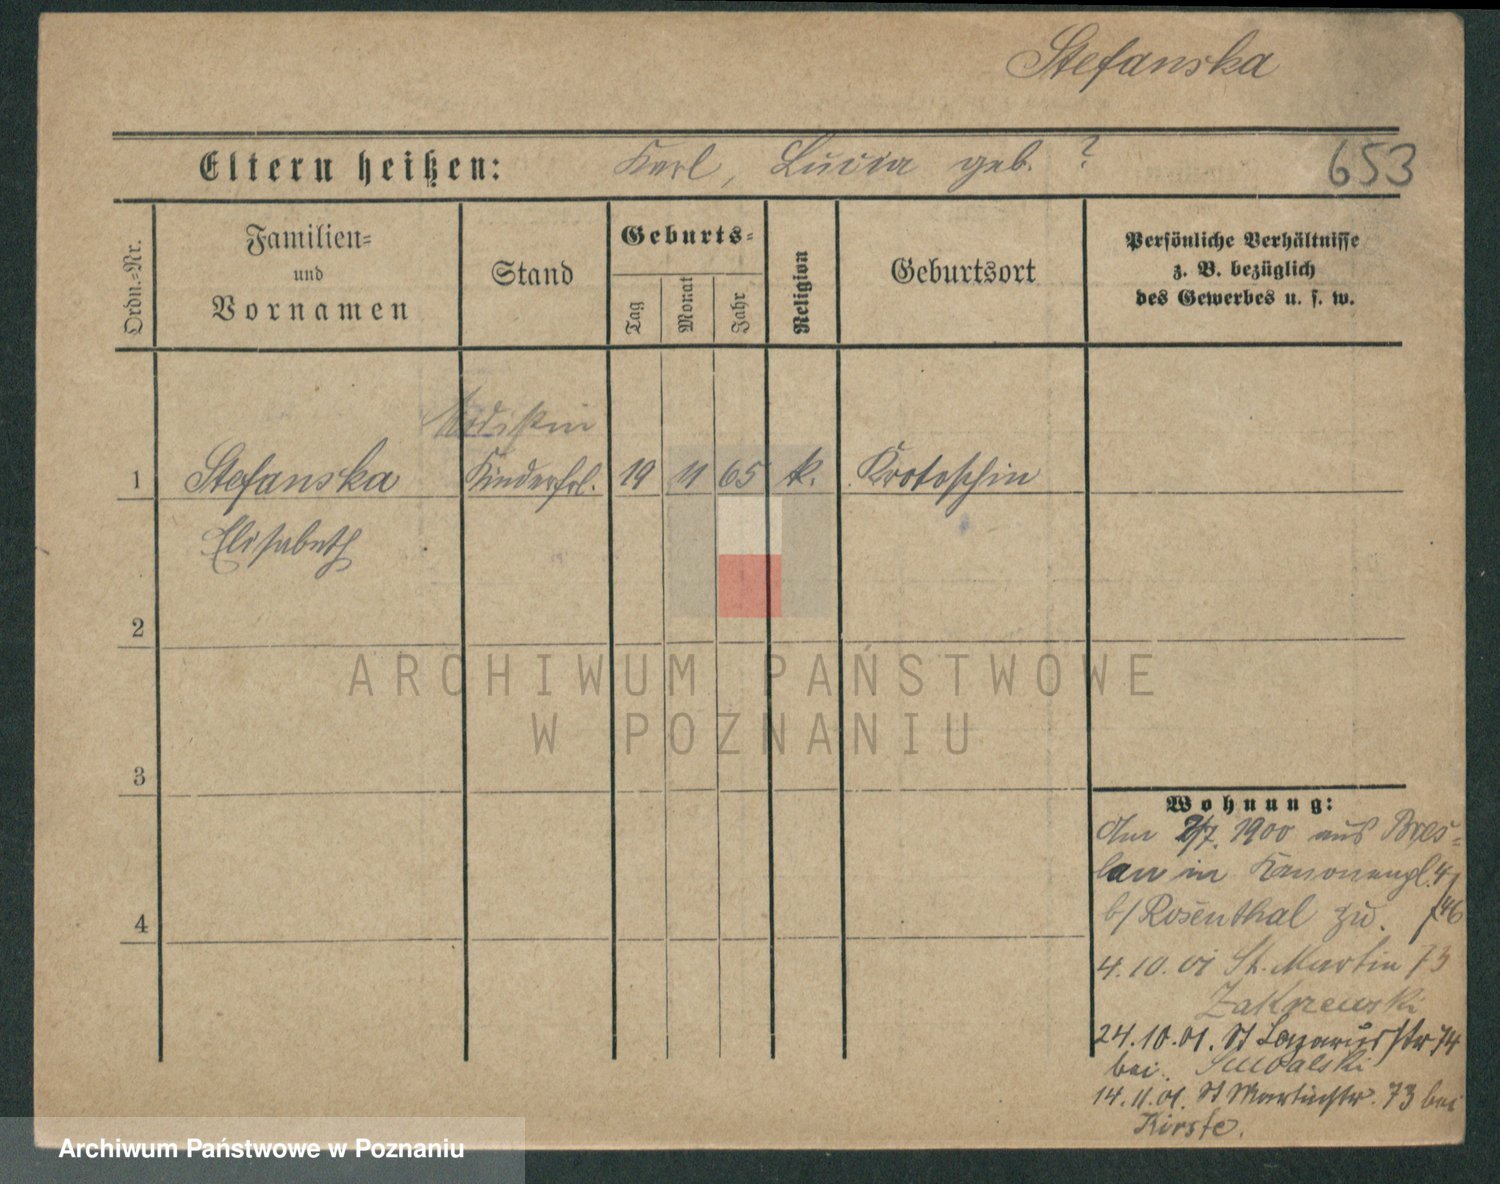 Stefanska
Eltern heißen: Karl, Lucia geb. ?
653
Ordn.-Nr.
Familien-
und
Vornamen
Stand
Geburts-
Tag
Monat
Jahr
Religion
Geburtsort
Persönliche Verhältnisse
z. B. bezüglich
des Gewerbes u. s. w.
Modistin
1 Stefanska Kinderfrl. 19 11 65 k. Krotoschin
Elisabeth
2
ARCHIWUM PAŃSTWOWE
W POZNANIU
3
Wohnung:
Am 2/7. 1900 aus Bres-
lau in
b/ Rosenthal zu.
4
4.10.01 St. Martin 73
Zakrzewski
24.10.01. St Lazarusstr 74
bei
14.11.01. St Martinstr. 73 bei
Kirste.
Archiwum Państwowe w Poznaniu